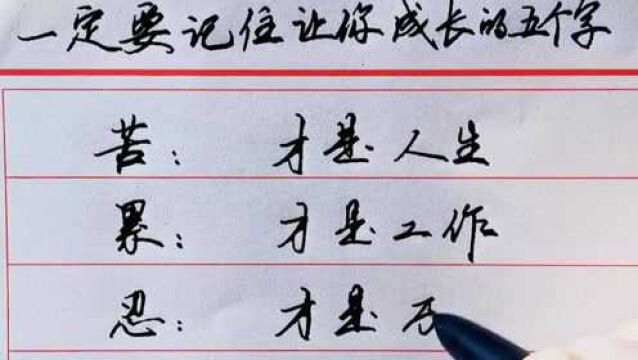 一定要记住让你成长的五个字
苦：才是人生
累：才是工作
忍：才是